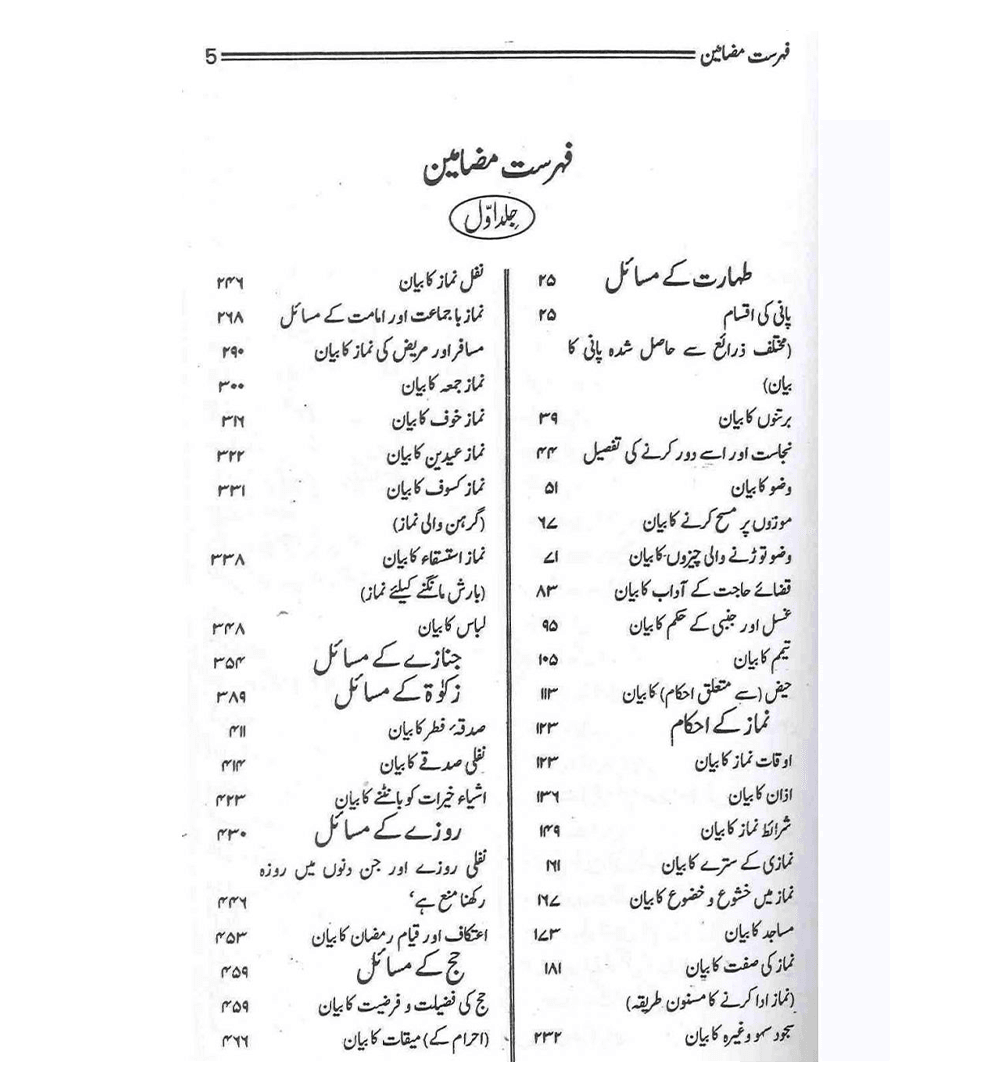 فہرست مضامین 5
فہرست مضامین
جلد اوّل
طہارت کے مسائل ۲۵
پانی کی اقسام ۲۵
(مختلف ذرائع سے حاصل شدہ پانی کا
بیان)
برتنوں کا بیان ۳۹
نجاست اور اسے دور کرنے کی تفصیل ۴۴
وضو کا بیان ۵۱
موزوں پر مسح کرنے کا بیان ۶۷
وضو توڑنے والی چیزوں کا بیان ۷۱
قضائے حاجت کے آداب کا بیان ۸۳
غسل اور جنبی کے حکم کا بیان ۹۵
تیمم کا بیان ۱۰۵
حیض (سے متعلق احکام) کا بیان ۱۱۳
نماز کے احکام ۱۲۳
اوقات نماز کا بیان ۱۲۳
اذان کا بیان ۱۳۶
شرائط نماز کا بیان ۱۴۹
نمازی کے سترے کا بیان ۱۶۱
نماز میں خشوع و خضوع کا بیان ۱۶۷
مساجد کا بیان ۱۷۳
نماز کی صفت کا بیان ۱۸۱
(نماز ادا کرنے کا مسنون طریقہ)
سجود سہو وغیرہ کا بیان ۲۳۲
نفل نماز کا بیان ۲۴۶
نماز با جماعت اور امامت کے مسائل ۲۶۸
مسافر اور مریض کی نماز کا بیان ۲۹۰
نماز جمعہ کا بیان ۳۰۰
نماز خوف کا بیان ۳۱۶
نماز عیدین کا بیان ۳۲۲
نماز کسوف کا بیان ۳۳۱
(گرہن والی نماز)
نماز استسقاء کا بیان ۳۳۸
(بارش مانگنے کیلئے نماز)
لباس کا بیان ۳۴۸
جنازے کے مسائل ۳۵۴
زکوٰۃ کے مسائل ۳۸۹
صدقہٴ فطر کا بیان ۴۱۱
نفلی صدقے کا بیان ۴۱۴
اشیاء خیرات کو بانٹنے کا بیان ۴۲۳
روزے کے مسائل ۴۳۰
نفلی روزے اور جن دنوں میں روزہ
رکھنا منع ہے‘ ۴۴۶
اعتکاف اور قیام رمضان کا بیان ۴۵۳
حج کے مسائل ۴۵۹
حج کی فضیلت و فرضیت کا بیان ۴۵۹
(احرام کے) میقات کا بیان ۴۶۶